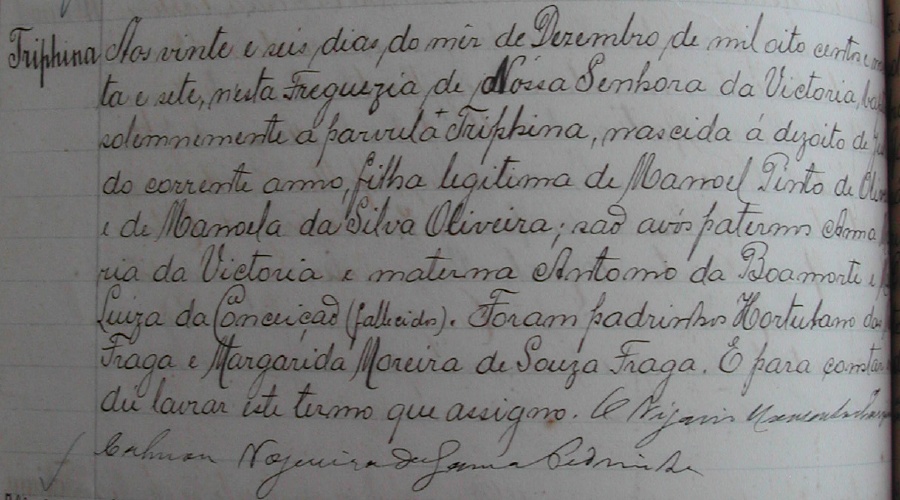 Triphina Aos vinte e seis dias do mêz de Dezembro de mil oito centos e
ta e sete, nesta Freguezia de Nossa Senhora da Victoria, bap
solemnemente a parvula Triphina, nascida á dezoito de
do corrente anno, filha legitima de Manoel Pinto de Oliv
e de Manoela da Silva Oliveira; são avós paternos Anna
ria da Victoria e materna Antonio da Boamorte e
Luiza da Conceição (fallecidos). Foram padrinhos Hortulano da
Fraga e Margarida Moreira de Souza Fraga. E para constar
dei lavrar este termo que assigno. O Vigario
Calmon Nogueira da Gama